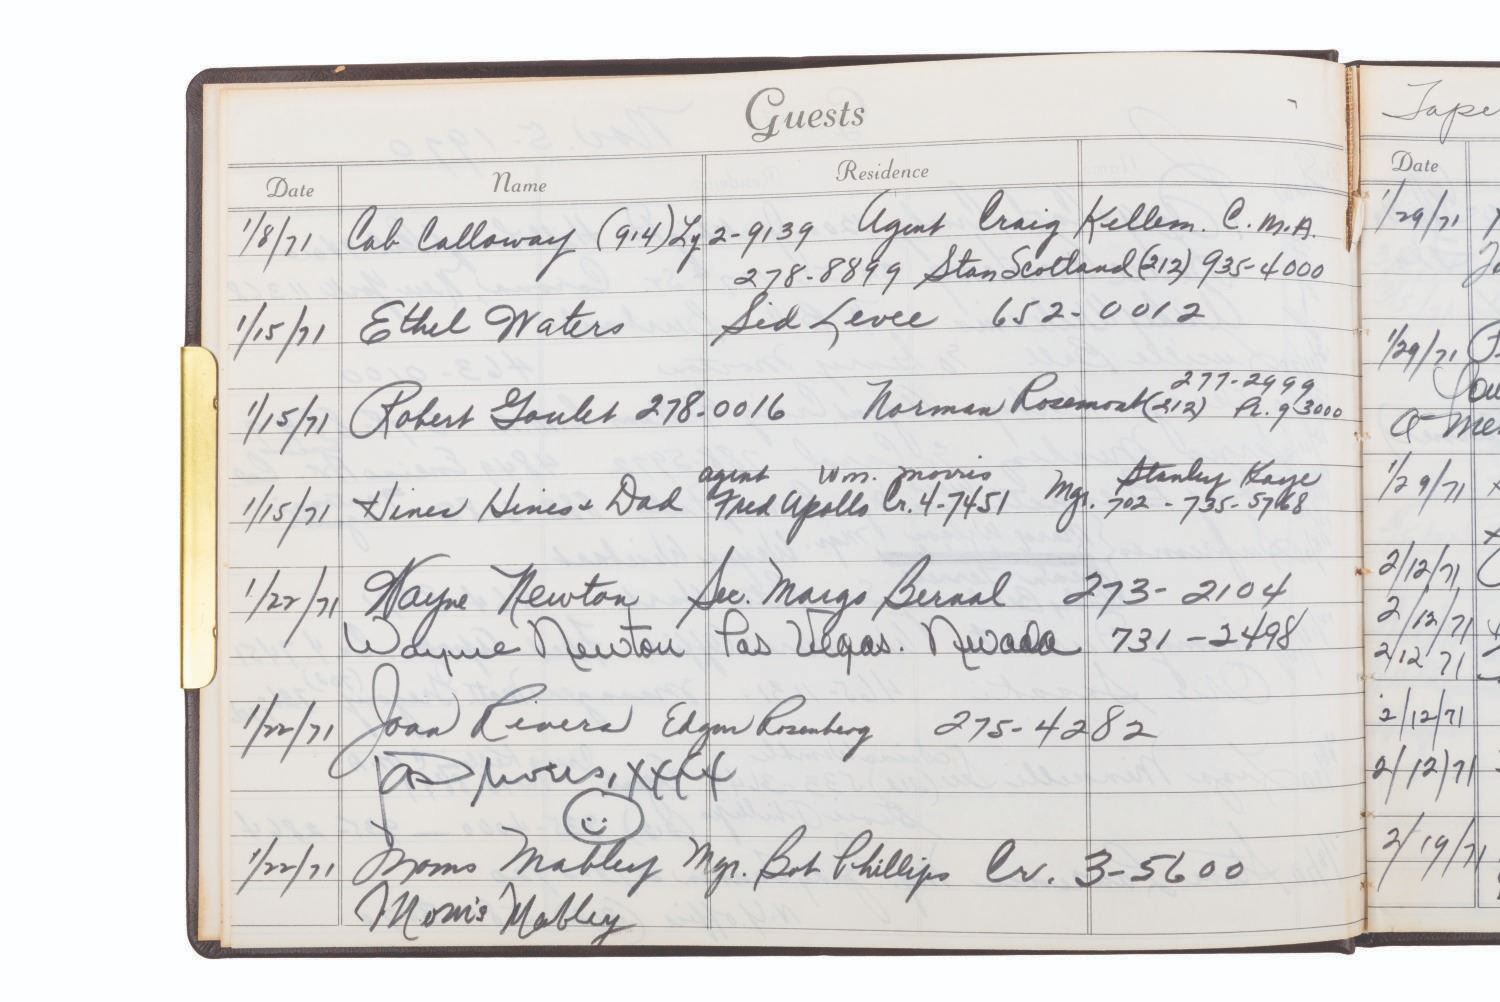 Guests
Date Name Residence
1/8/71 Cab Calloway (914) Ly 2-9139 Agent Craig Kellem. C.M.A.
278-8899 Stan Scotland (212) 935-4000
1/15/71 Ethel Waters Sid Levee 652-0012
277-2999
1/15/71 Robert Goulet 278-0016 Norman Rosemont (212) Pl. 9 3000
agent Wm. Morris Stanley Kaye
1/15/71 Hines Hines & Dad Fred Apollo Cr. 4-7451 Mgr. 702-735-5768
1/22/71 Wayne Newton Sec. Margo Bernal 273-2104
Wayne Newton Las Vegas. Nevada 731-2498
1/22/71 Joan Rivers Edgar Rosenberg 275-4282
XXXX
1/22/71 Moms Mabley Mgr. Bob Phillips Cr. 3-5600
Moms Mabley
Tape
Date
1/29/71
1/29/71
1/29/71
2/12/71
2/12/71
2/12 71
2/12/71
2/12/71
2/19/71